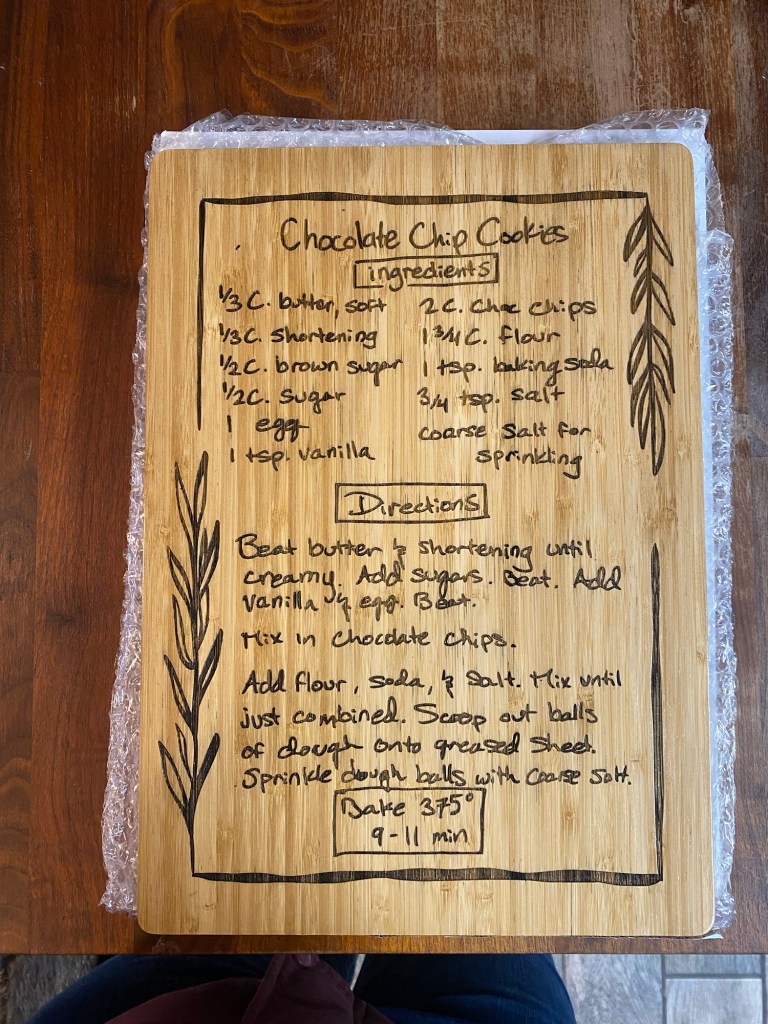 Chocolate Chip Cookies
ingredients
1/3 C. butter, soft
1/3 C. shortening
1/2 C. brown sugar
1/2 C. sugar
1 egg
1 tsp. vanilla
2 C. Choc chips
1 3/4 C. flour
1 tsp. baking soda
3/4 tsp. salt
coarse salt for
sprinkling
Directions
Beat butter & shortening until
creamy. Add sugars. Beat. Add
vanilla & egg. Beat.
Mix in chocolate chips.
Add flour, soda, & salt. Mix until
just combined. Scoop out balls
of dough onto greased sheet.
Sprinkle dough balls with coarse salt.
Bake 375°
9-11 min